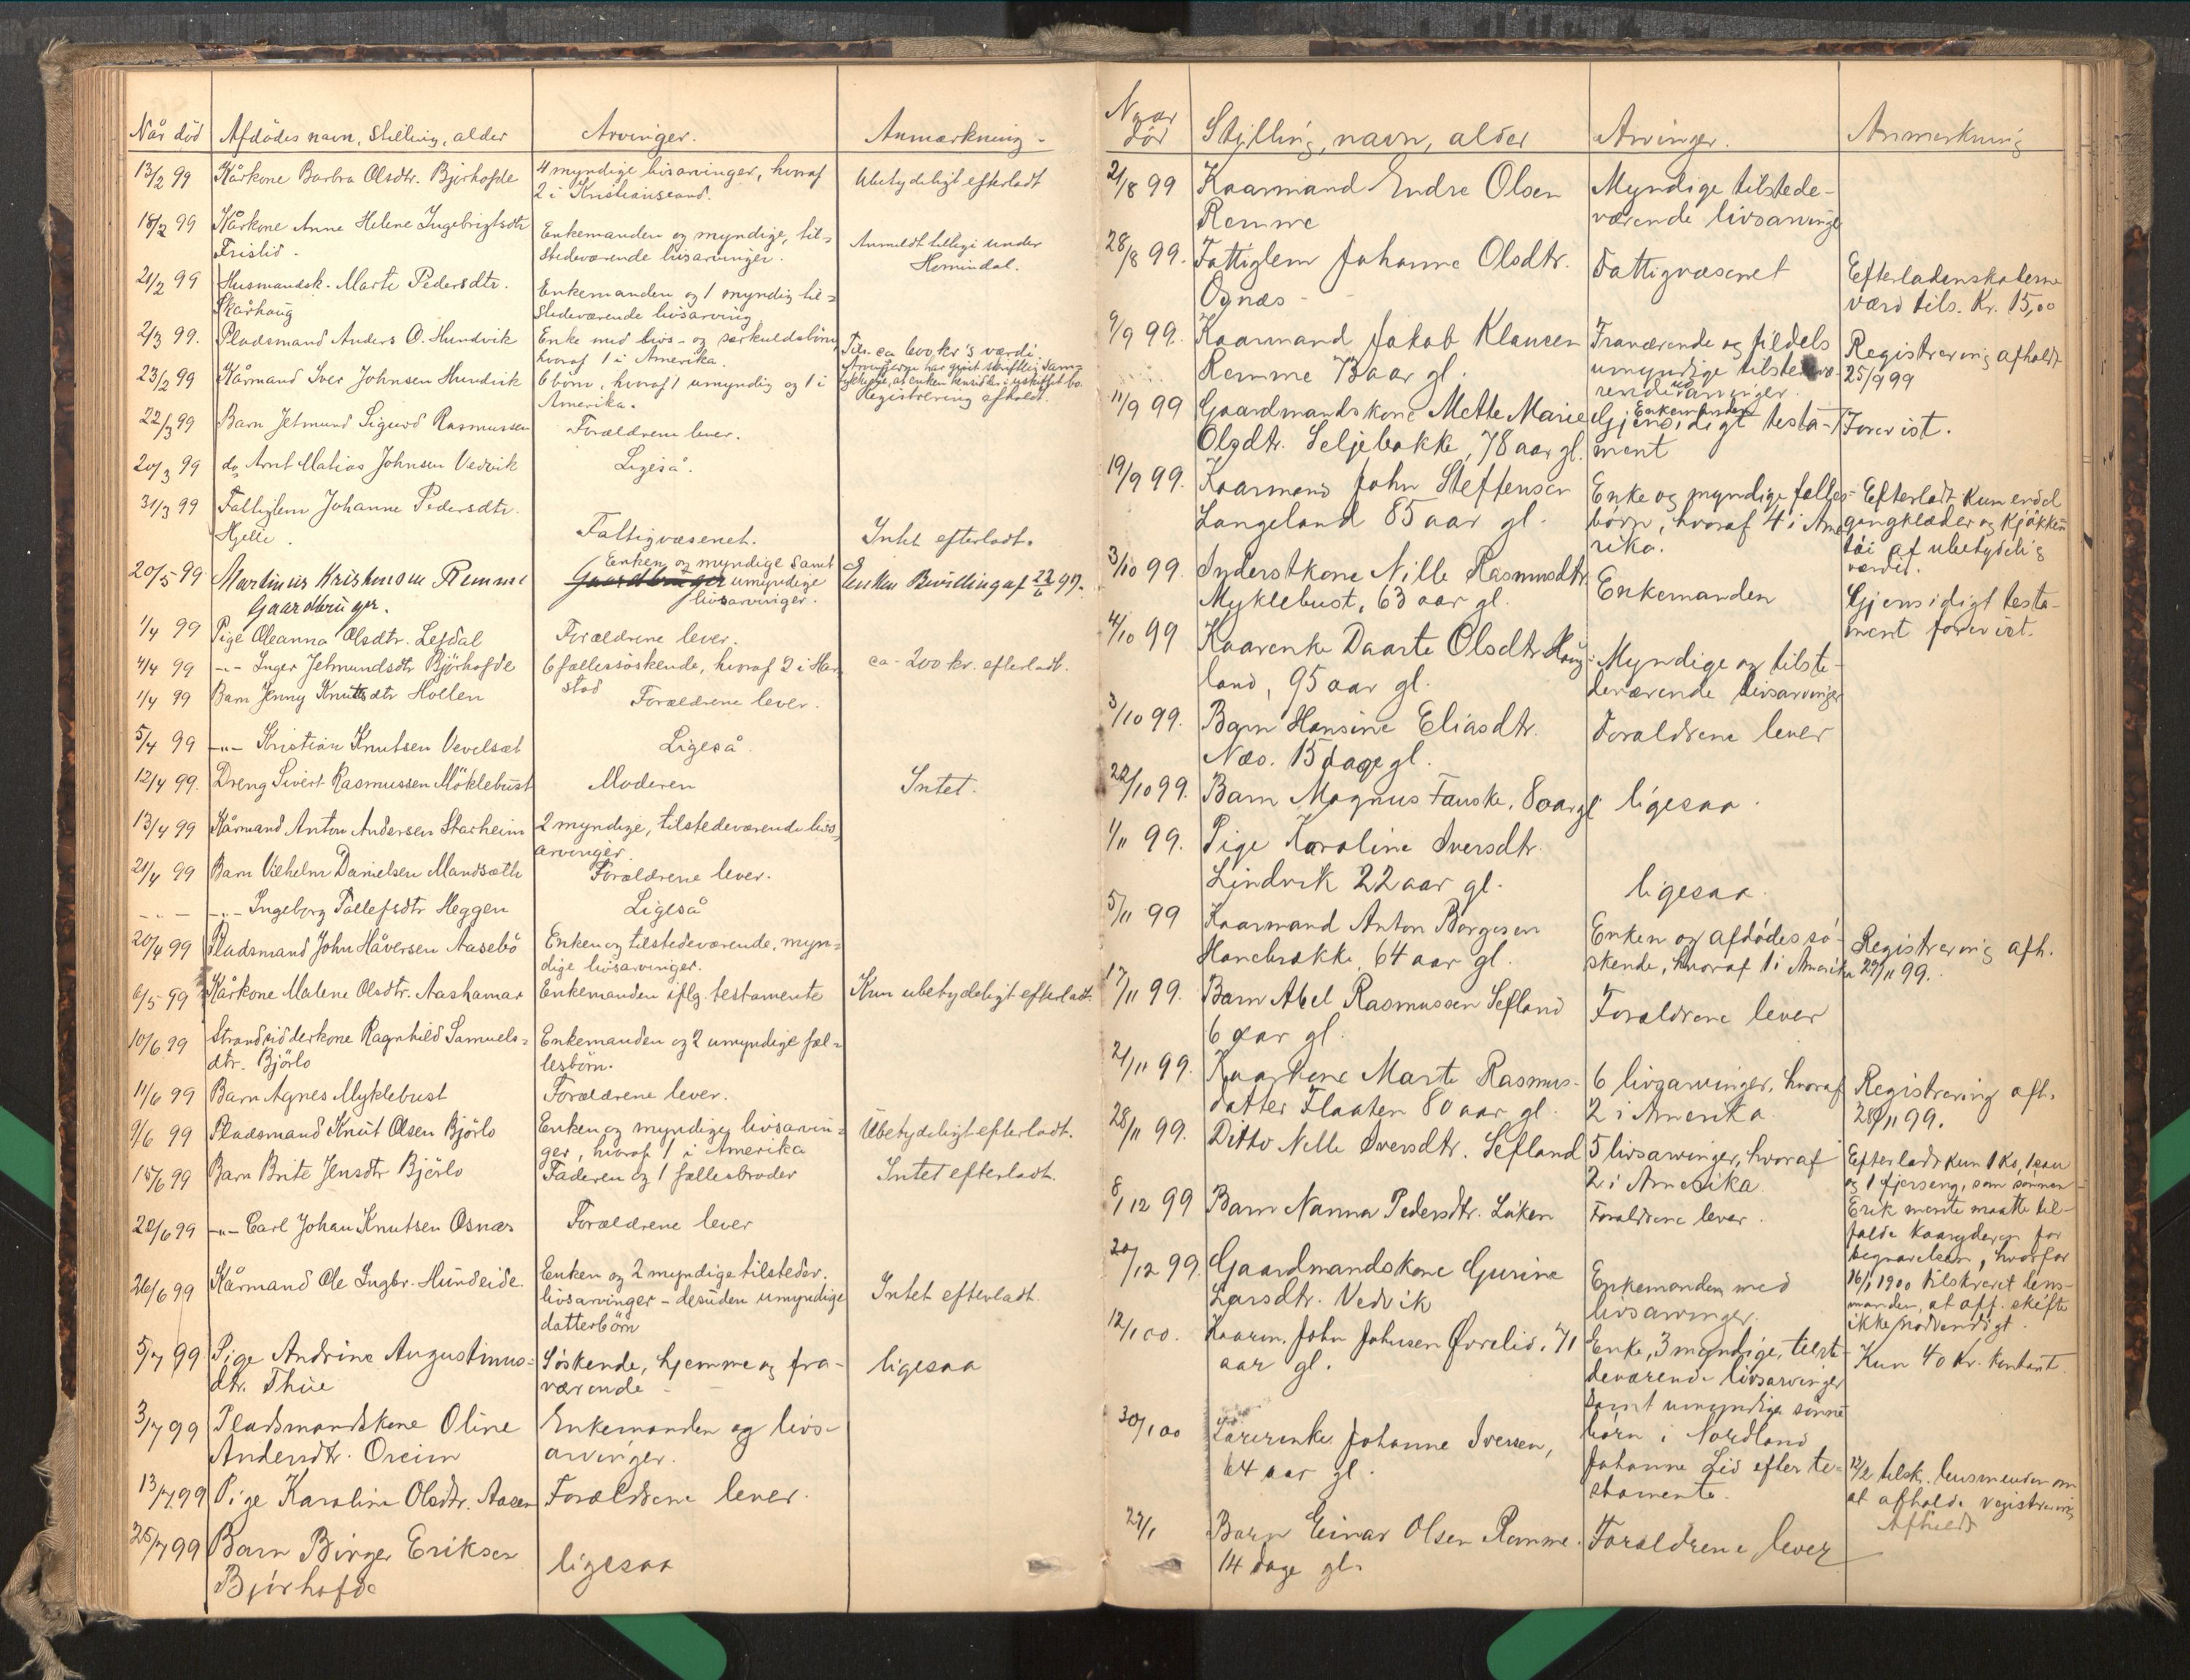 Når död Afdödes navn, stilling, alder Arvinger. Anmærkning -
13/2 99 Kårkone Barbra Olsdtr. Bjørhofde 4 myndige livsarvinger, hvoraf Ubetydeligt efterladt
2 i Kristiansund.
18/2 99 Kårkone Anne Helene Ingebrigtsdtr Enkemanden og myndige, til-
Fristid. stedeværende livsarvinger. Anmeldt tillige under
Hornindal.
21/2 99 Husmandsk. Marte Pedersdtr. Enkemanden og 1 myndig til-
Skårhaug stedeværende livsarving
2/3 99. Pladsmand Anders O. Hundvik Enke med livs- og særkuldsbörn
hvoraf 1 i Amerika. Tils. ca 600 kr's værdi.
23/2 99 Kårmand Iver Johnsen Hundvik 6 börn, hvoraf 1 umyndig og 1 i
Amerika. Registrering afholdt.
22/3 99 Barn Jetmund Sigurd Rasmussen Forældrene lever.
20/3 99 do Arnt Matias Johnsen Vedvik Ligeså.
31/3 99 Fattiglem Johanne Pedersdtr.
Hjelle. Fattigvæsenet. Intet efterladt.
20/5 99 Martinus Kristensen Remme Enken og myndige samt umyndige Enken Bevilling af 22/6 99.
Gaardbruger. livsarvinger.
1/4 99 Pige Oleanna Olsdtr. Lefdal Forældrene lever.
4/4 99 -"- Inger Jetmundsdtr Bjørhofde 6 fællessöskende, hvoraf 2 i Har- ca. 200 kr. efterladt.
stad
1/4 99 Barn Jenny Knutsdtr Hollen Forældrene lever.
5/4 99 -"- Kristian Knutsen Vevelsæt Ligeså
12/4 99. Dreng Sivert Rasmussen Möklebust Moderen Intet.
13/4 99 Kårmand Anton Andersen Starheim 2 myndige, tilstedeværende livs-
arvinger.
21/4 99 Barn Vilhelm Danielsen Maudsæth Forældrene lever.
-"- -"- Ingeborg Tollefsdtr Heggen Ligeså
20/4 99 Pladsmand John Håversen Aasebö Enken og tilstedeværende, myn-
dige livsarvinger.
6/5 99 Kårkone Malene Olsdtr. Aashamar Enkemanden iflg. testamente Kun ubetydeligt efterladt.
10/6 99 Strandsidderkone Ragnhild Samuels- Enkemanden og 2 umyndige fæl-
dtr. Bjørlo lesbörn.
11/6 99 Barn Agnes Myklebust Forældrene lever.
9/6 99 Pladsmand Knut Olsen Bjørlo Enken og myndige livsarvin- Ubetydeligt efterladt.
ger, hvoraf 1 i Amerika
15/6 99 Barn Brite Jensdtr Bjørlo Faderen og 1 fællesbroder Intet efterladt.
22/6 99 -"- Carl Johan Knutsen Osnæs Forældrene lever
26/6 99 Kårmand Ole Ingbr. Hundeide Enken og 2 myndige tilstedev.
livsarvinger - desuden umyndige Intet efterladt.
datterbörn
5/7 99 Pige Andrine Augustinus- Söskende, hjemme og fra- ligesaa
dtr. Thue værende -
3/7 99 Pladsmandskone Oline Enkemanden og livs-
Andersdtr. Oreim arvinger.
13/7 99 Pige Karoline Olsdtr. Aasen Forældrene lever.
25/7 99 Barn Birger Eriksen ligesaa
Bjørhofde
Naar
död Stilling, navn, alder Arvinger. Anmerkning
2/8 99 Kaarmand Endre Olsen Myndige tilstede-
Remme værende livsarvinge
28/8 99. Fattiglem Johanne Olsdtr. Fattigvæsenet Efterladenskaberne
Osnæs - værd tils. Kr. 15,00
9/9 99. Kaarmand Jakob Klausen Fraværende og tildels Registrering afholdt
Remme 73 aar gl. umyndige tilstedevæ- 25/9 99
rende arvinger.
11/9 99 Gaardmandskone Mette Marie Enkemanden Gjensidigt testa- Forevist.
Olsdtr. Seljebakke, 78 aar gl. ment
19/9 99. Kaarmand John Steffensen Enke og myndige fælles- Efterladt kun endel
Langeland 85 aar gl. börn, hvoraf 4 i Ame- gangklæder og kjökken
rika. töi af ubetydelig
værdi.
3/10 99. Inderstkone Nille Rasmusdtr. Enkemanden Gjensidigt testa-
Myklebust, 63 aar gl. ment forevist.
4/10 99 Kaarenke Daarte Olsdtr Haug- Myndige og tilste-
land, 95 aar gl. deværende livsarvinger
3/10 99. Barn Hansine Eliasdtr. Forældrene lever
Næs. 15 dage gl.
22/10 99. Barn Magnus Fauske, 8 aar gl ligesaa.
1/11 99. Pige Karoline Iversdtr.
Lindvik 22 aar gl. ligesaa.
5/11 99 Kaarmand Anton Borgesen Enken og afdödes sö- Registrering afh.
Hanebrække, 64 aar gl. skende, hvoraf 1 i Amerika 29/11 99.
17/11 99. Barn Abel Rasmussen Sefland Forældrene lever
6 aar gl.
21/11 99. Kaarkone Marte Rasmus- 6 livsarvinger, hvoraf Registrering afh.
datter Flaaten 80 aar gl. 2 i Amerika. 28/11 99.
28/11 99. Ditto Nille Iversdtr. Sefland 5 livsarvinger, hvoraf Efterladt kun 1 ko, 1 sau
2 i Amerika og 1 fjerseng, som sönnen
8/12 99 Barn Nanna Pedersdtr. Løken Forældrene lever. Erik mente maatte til-
falde kaaryderen for
20/12 99. Gaardmandskone Gurine Enkemanden med begravelsen, hvorfor
Larsdtr. Vedvik livsarvinger. 16/1 1900 tilskrevet lens-
manden, at off. skifte
ikke nødvendigt.
12/1 00. Kaarm. John Johnsen Øvrelid, 71 Enke, 3 myndige, tilste- Kun 40 kr. kontant.
aar gl. deværende livsarvinger
samt umyndige sønne-
börn i Nordland
30/1 00 Lærerenke Johanne Iversen, Johanne Lid efter te- 12/2 tilsk. lensmanden om
64 aar gl. stamente. at afholde registrering
Afholdt
27/1 Barn Einar Olsen Remme. Forældrene lever
14 dage gl.